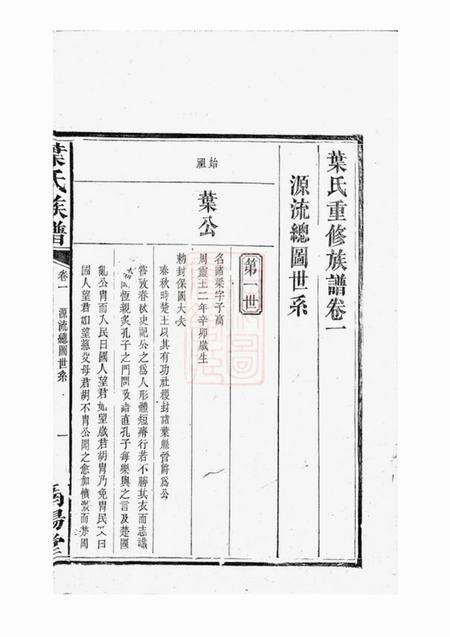 葉氏重修族譜卷一
源流總圖世系
始祖
葉公
第一世
名諸梁字子高
周靈王二年辛夘歲生
勅封保國大夫
春秋時楚王以其有功社稷封諸葉縣晉爵爲公
嘗攷春秋史記公之爲人形體短瘠行若不勝其衣而志識
恆親炙孔子之門問政諸直孔子每樂與之言及楚國
亂公冑而入民曰國人望君如望歲君胡冑乃免冑民又曰
國人望君如望慈父母君胡不冑公聞之愈加
葉氏族譜
卷一
源流總圖世系
一
陽堂